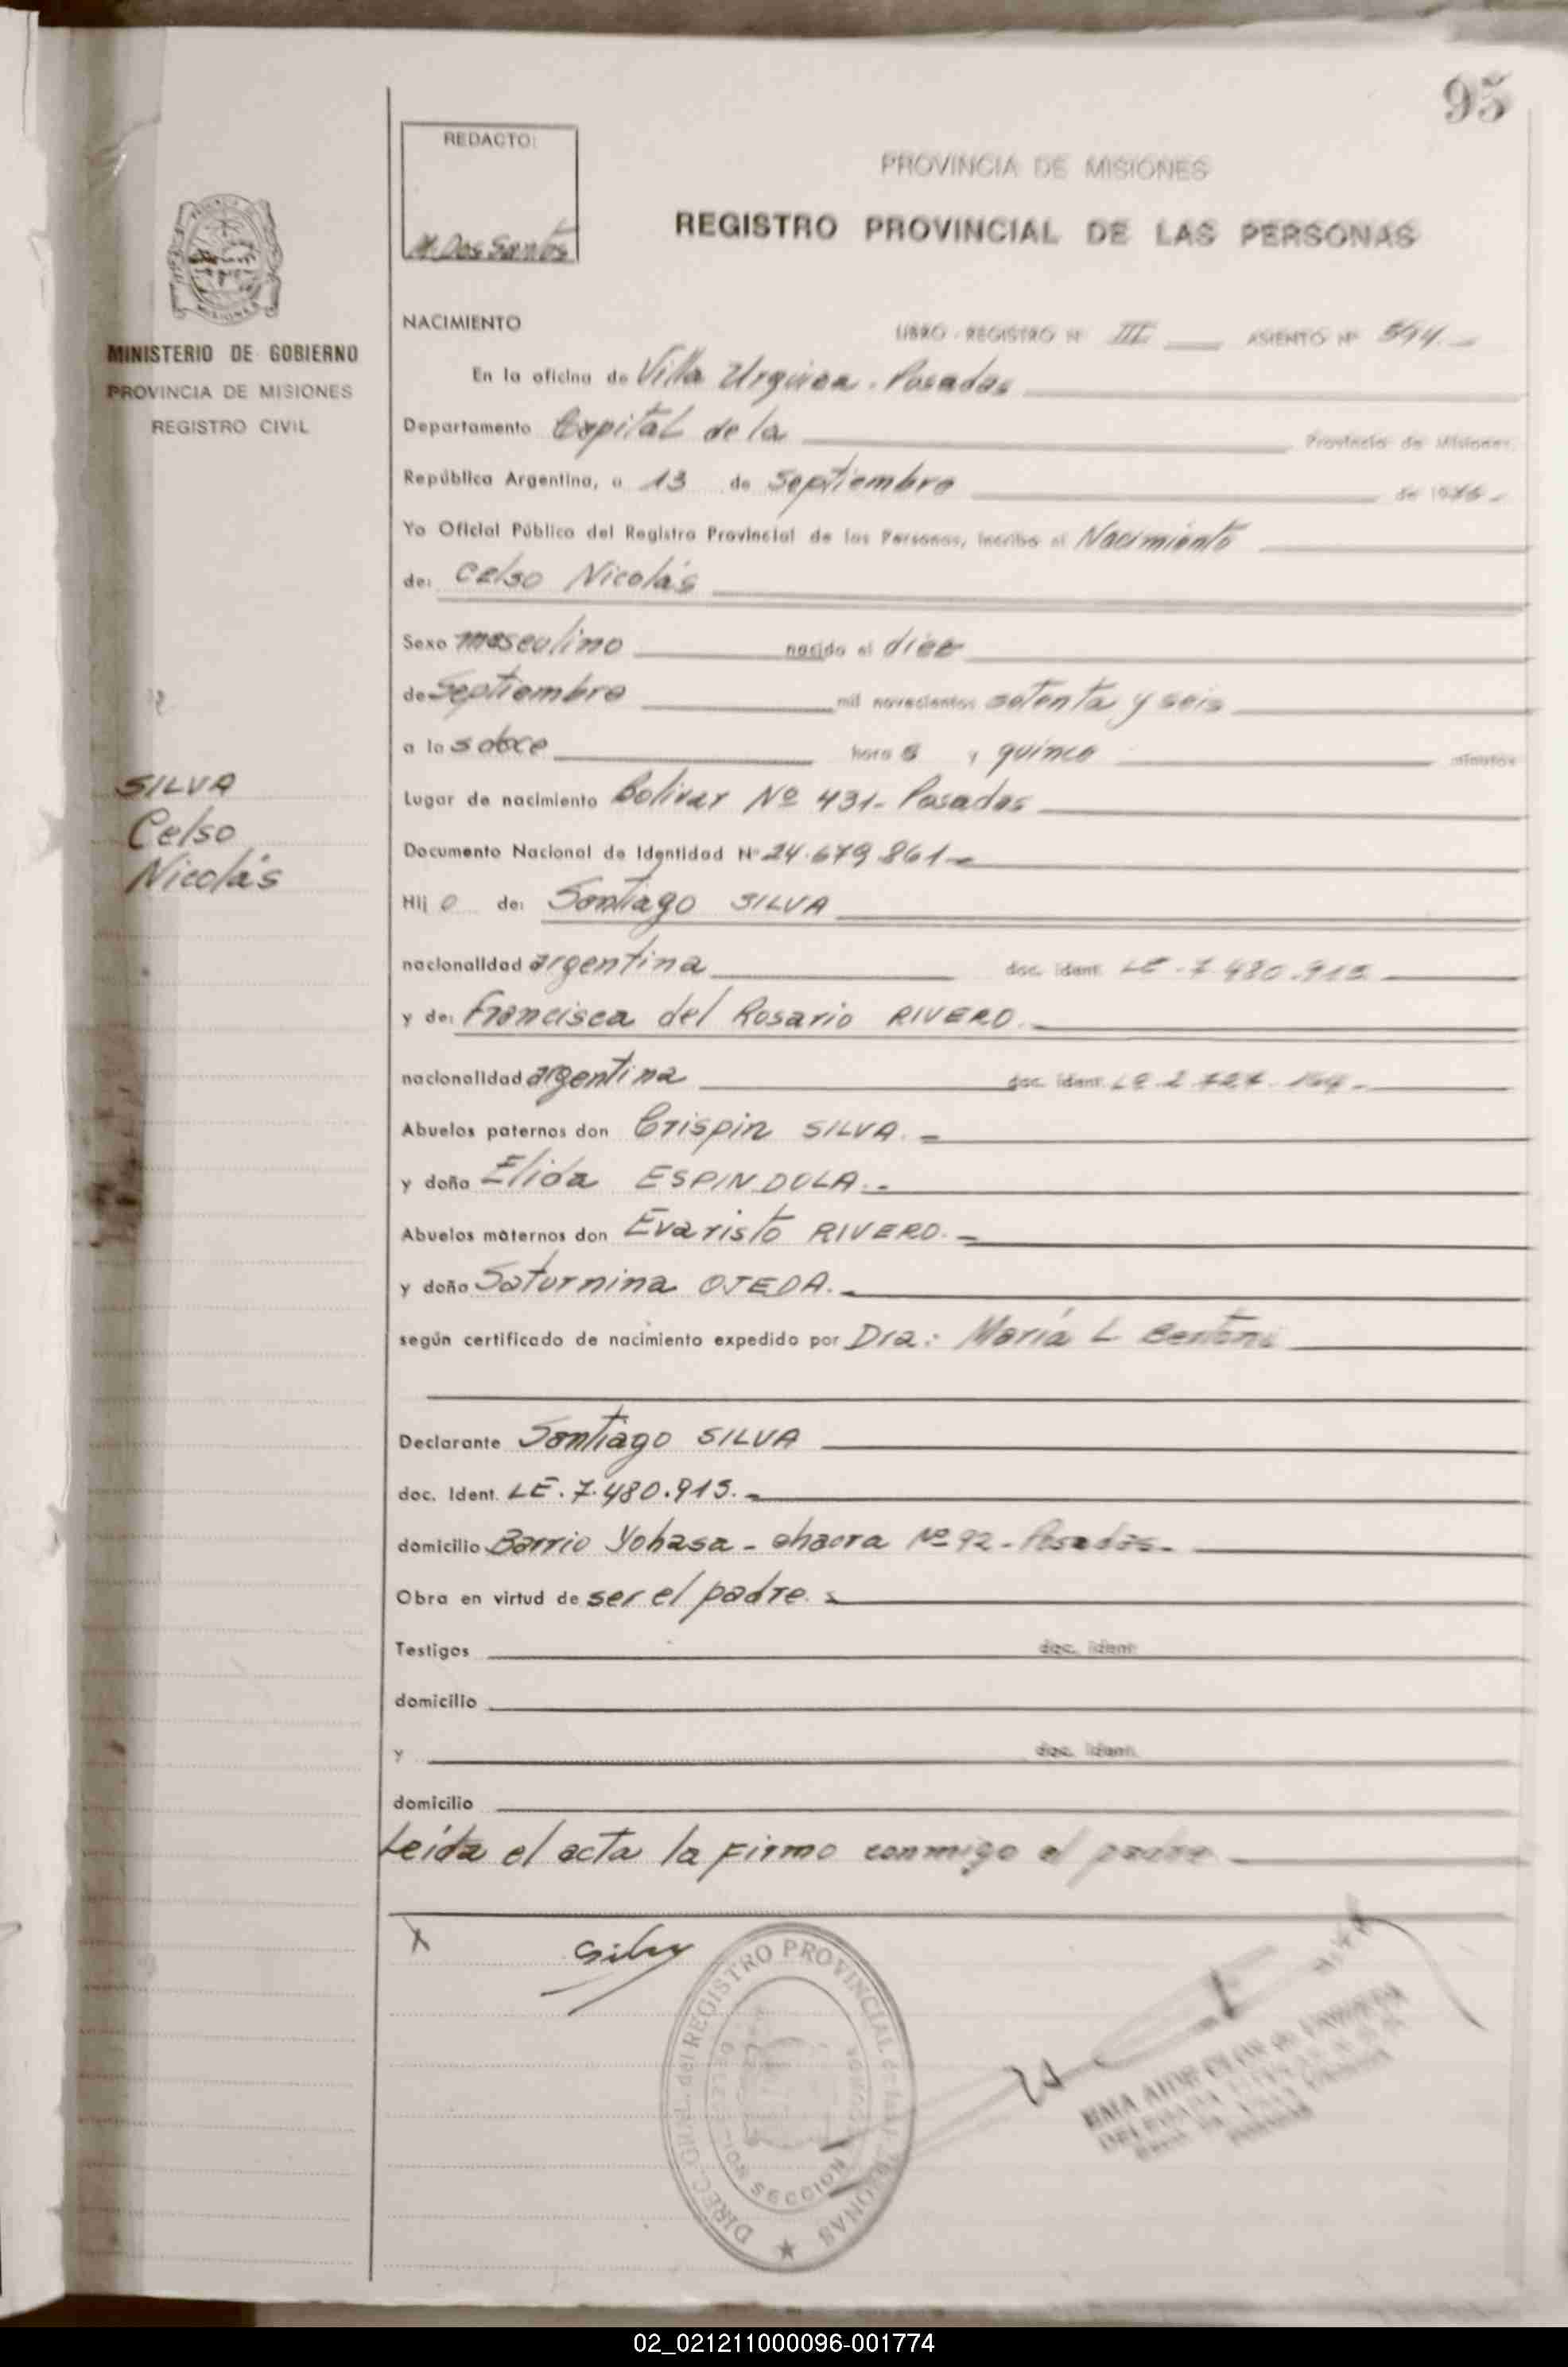 95
REDACTO:
M. Dos Santos
PROVINCIA DE MISIONES
REGISTRO PROVINCIAL DE LAS PERSONAS
MINISTERIO DE GOBIERNO
PROVINCIA DE MISIONES
REGISTRO CIVIL
NACIMIENTO
LIBRO - REGISTRO Nº III ASIENTO Nº 594.-
En la oficina de Villa Urquiza - Posadas
Departamento Capital de la Provincia de Misiones,
República Argentina, a 13 de Septiembre de 1976-
Yo Oficial Público del Registro Provincial de las Personas, inscribo el Nacimiento
de: Celso Nicolás
Sexo masculino nacido el diez
de Septiembre mil novecientos setenta y seis
a las doce horas y quince minutos
SILVA
Celso
Nicolás
Lugar de nacimiento Bolivar Nº 431- Posadas
Documento Nacional de Identidad Nº 24.679.861-
Hijo de: Santiago SILVA
nacionalidad argentina doc. ident. LE - 7.480.915
y de: Francisca del Rosario RIVERO.
nacionalidad argentina doc. ident.
Abuelos paternos don Crispin SILVA. -
y doña Elida ESPINDOLA. -
Abuelos maternos don Evaristo RIVERO. -
y doña Saturnina OJEDA. -
según certificado de nacimiento expedido por Dra: María L
Declarante Santiago SILVA
doc. Ident. LE. 7.480.915. -
domicilio Barrio Yohasa - chacra Nº 92 - Posadas.
Obra en virtud de ser el padre.
Testigos doc. ident.
domicilio
y doc. ident.
domicilio
Leída el acta la firmo conmigo el padre
X Silva
DIREC. GRAL. del REGISTRO PROVINCIAL de las PERSONAS
SECCION
02_021211000096-001774